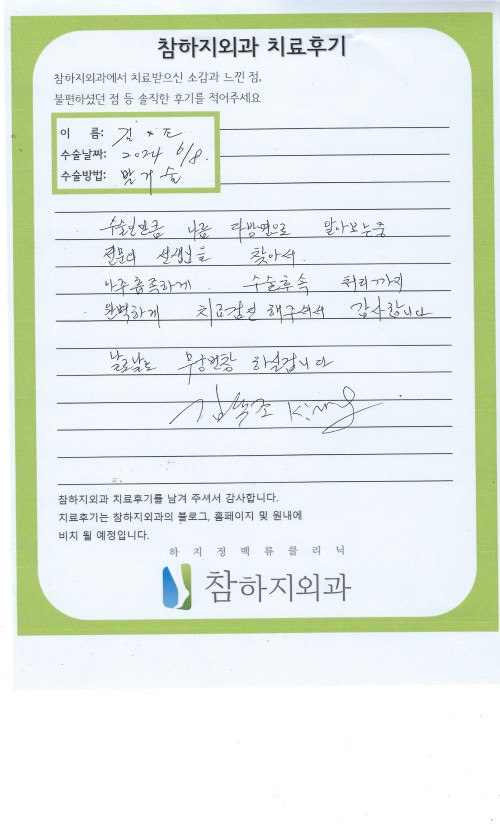 참하지외과 치료후기
참하지외과에서 치료받으신 소감과 느낀 점,
불편하셨던 점 등 솔직한 후기를 적어주세요
이 름: 김
수술날짜: 2024 6/8.
수술방법: 발거술
수술인만큼 나름 다방면으로 알아보는중
전문의 선생님을 찾아서
아주흡족하게. 수술후속 처리까지
완벽하게 치료검진 해주셔서 감사합니다
날로날로 무궁번창 하실겁니다
참하지외과 치료후기를 남겨 주셔서 감사합니다.
치료후기는 참하지외과의 블로그, 홈페이지 및 원내에
비치 될 예정입니다.
하지정맥류클리닉
참하지외과